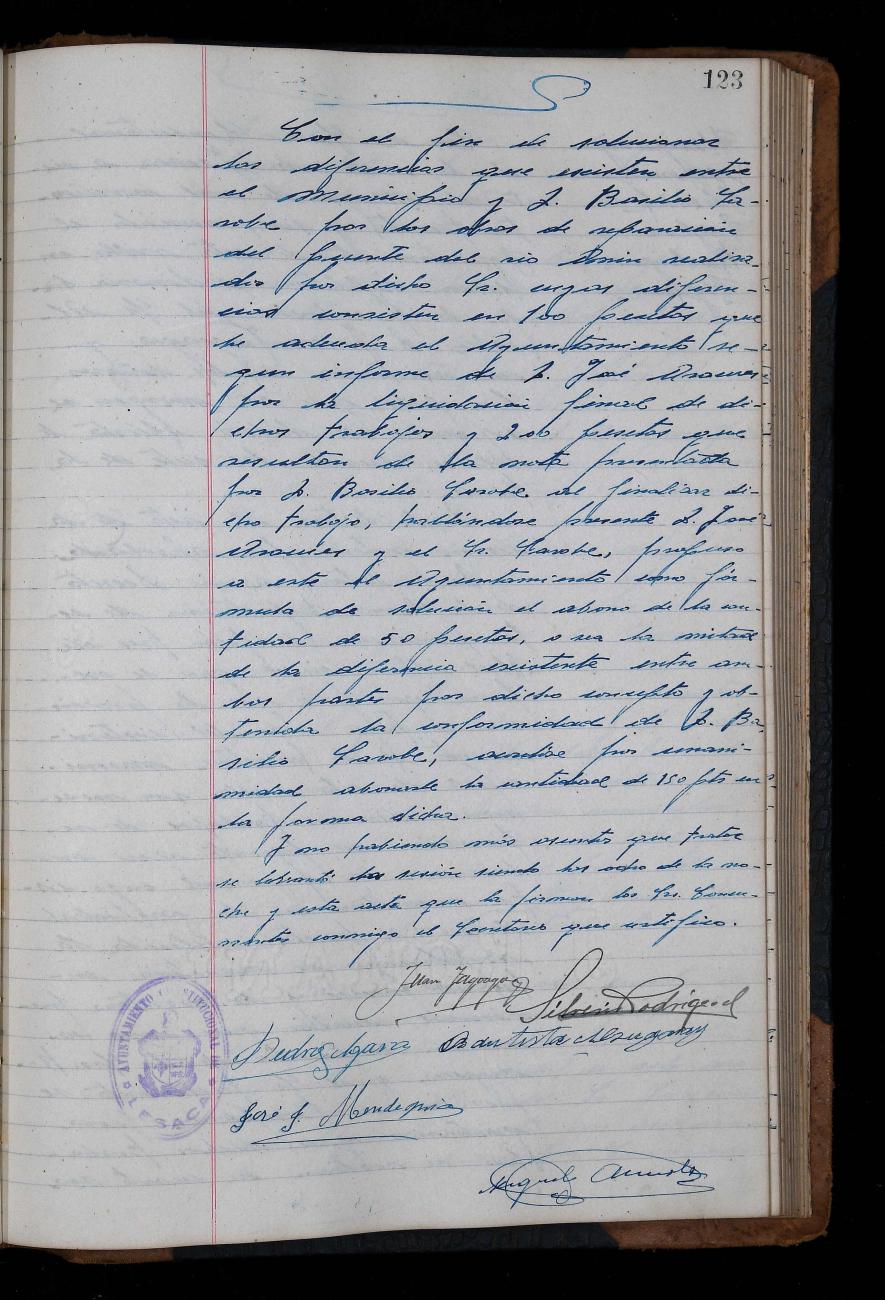 123
Con el fin de solucionar
las diferencias que existen entre
el Municipio y D. Basilio Ga-
robe por las obras de reparación
del puente del rio Onin realiza-
das por dicho Sr. cuyas diferen-
cias consisten en 100 pesetas que
le adeuda el Ayuntamiento se-
gun informe de D. José
por la liquidación final de di-
chos trabajos y 200 pesetas que
resultan de la nota presentada
por D. Basilio Garobe al finalizar di-
cho trabajo, hablándose presente D. José
y el Sr. Garobe, propuso
a este el Ayuntamiento como fór-
mula de solución el abono de la can-
tidad de 50 pesetas, o sea la mitad
de la diferencia existente entre am-
bas partes por dicho concepto y ob-
tenida la conformidad de D. Ba-
silio Garobe, acordóse por unani-
midad abonarle la cantidad de 150 pts en
la forma dicha.
Y no habiendo más asuntos que tratar
se levantó la sesión siendo las ocho de la no-
che y esta acta que la firman los Sr. Concu-
rrentes conmigo el Secretario que certifico.
Juan
Silverio Rodriguez
Pedro
Bautista
José J. Mendeguia
Miguel
AYUNTAMIENTO CONSTITUCIONAL DE
LESACA